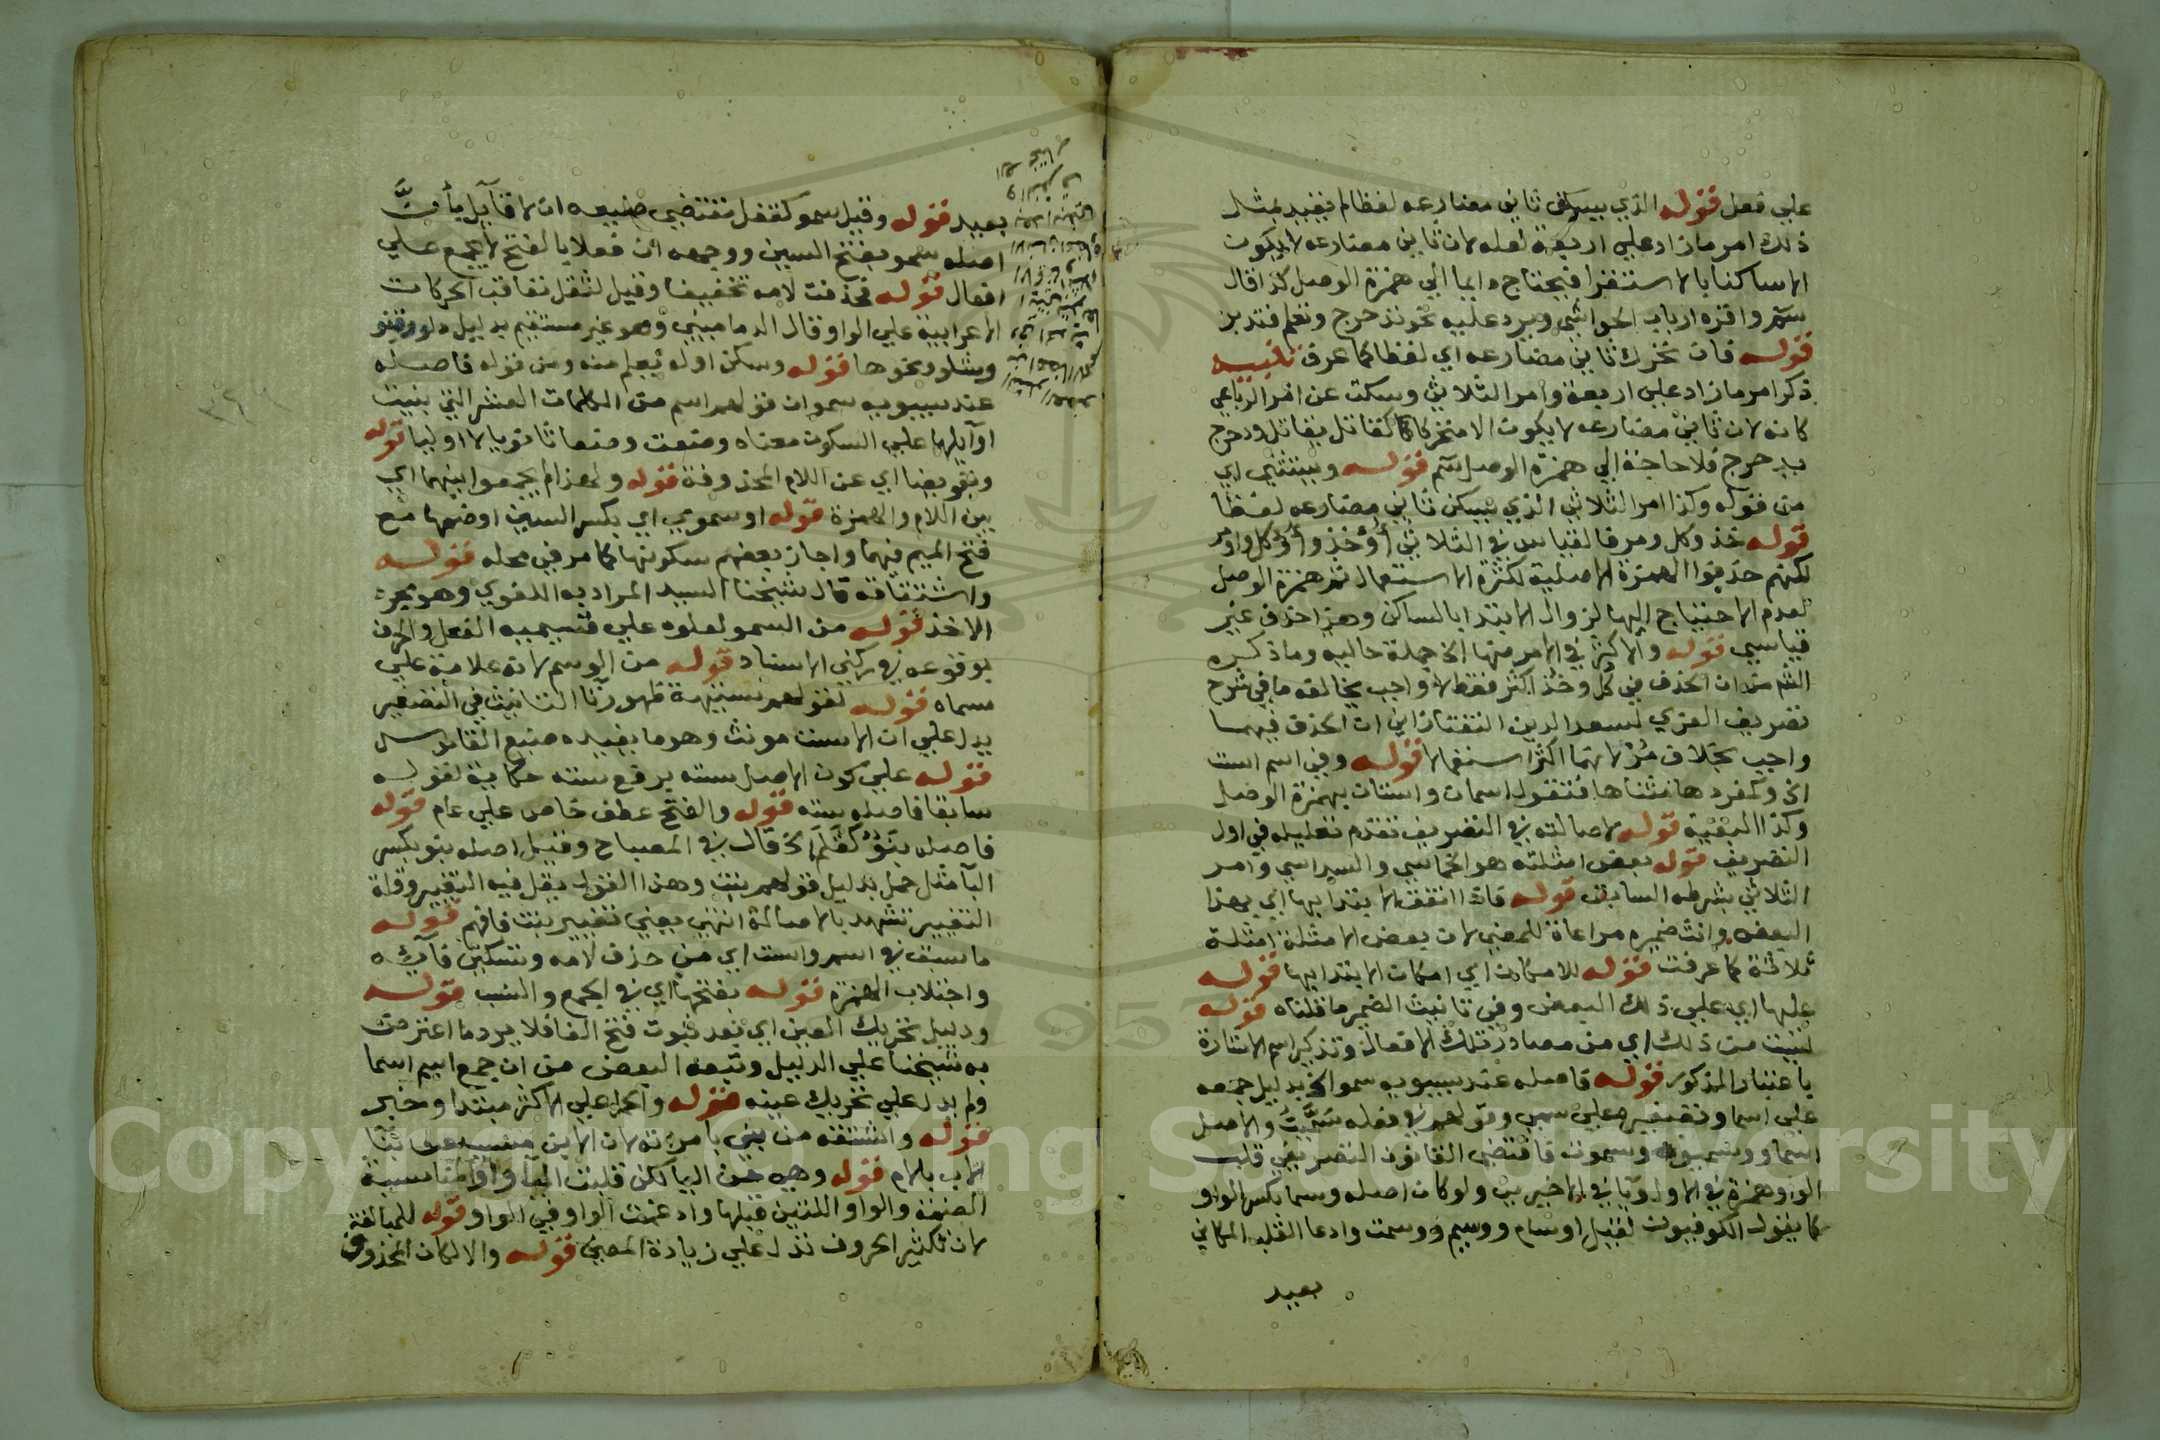 علي فعل قوله الذي يسكن ثاني مضارعه لفظا لم يقيد بمثل
ذلك امر ما زاد علي اربعة لعله لان ثاني مضارعه لا يكون
الا ساكنا بالاستقرا فيحتاج دايما الي همزة الوصل كذا قال
سم واقره ارباب الحواشي ويرد عليه نحو تدحرج وتعلم فتدبر
قوله فان تحرك ثاني مضارعه اي لفظا كما عرف تنبيه
ذكر امر ما زاد علي اربعة وامر الثلاثي وسكت عن امر الرباعي
كانه لان ثاني مضارعه لا يكون الا متحركا كقاتل يقاتل ودحرج
يدحرج فلا حاجة الي همزة الوصل سم قوله ويستثني اي
من قوله وكذا امر الثلاثي الذي يسكن ثاني مضارعه لفظا
قوله خذ وكل ومر فالقياس في الثلاثي أؤخذ وأؤكل واؤمر
لكنهم حذفوا الهمزة الاصلية لكثرة الاستعمال ثم همزة الوصل
لعدم الاحتياج اليها لزوال الابتدا بالساكن وهذا حذف غير
قياسي قوله والاكثر في الامر منها الخ جملة حالية وما ذكره
الشم من ان الحذف في كل وخذ اكثر فقط لا واجب يخالفه ما في شرح
تصريف العزي لسعد الدين التفتازاني ان الحذف فيهما
واجب بخلاف مر لانهما اكثر استعمالا قوله وفي اسم است
الخ وكمفردها مثناها فتقول اسمان واستان بهمزة الوصل
وكذا البقية قوله لاصالته في التصريف تقدم تعليله في اول
التصريف قوله بعض امثلته هو الخماسي والسداسي وامر
الثلاثي بشرطه السابق قوله فان اتفق الابتدا بها اي بهذا
البعض وانث ضميره مراعاة للمعني لان بعض الامثلة امثلة
ثلاثة كما عرفت قوله للامكان اي امكان الابتدا بها قوله
عليها اي علي ذلك البعض وفي تانيث الضمير ما قلناه قوله
ليست من ذلك اي من مصادر تلك الافعال وتذكير اسم الاشارة
باعتبار المذكور قوله فاصله عند سيبويه سمو الخ بدليل جمعه
علي اسما وتصغيره علي سمي وقولهم في فعله سميت والاصل
اسماو وسميو وسموت فاقتضي القانون التصريفي قلب
الواو همزة في الاول ويا في الاخيرين ولو كان اصله وسما بكسر الواو
كما يقول الكوفيون لقيل اوسام ووسيم ووسمت وادعا القلب المكاني
بعيد
بعيد قوله وقيل سمو كقفل مقتضي صنيعه ان لا قايل بأن
اصله سمو بفتح السين ووجهه ان فعلا بالفتح لا يجمع علي
افعال قوله فحذفت لامه تخفيفا وقيل لثقل تعاقب الحركات
الاعرابية علي الواو قال الدماميني وهو غير مستقيم بدليل دلو وقنو
وشلو ونحوها قوله وسكن اوله يعلم منه ومن قوله فاصله
عند سيبويه سمو ان قولهم اسم من الكلمات العشر التي بنيت
اوايلها علي السكون معناه وضعت وضعا ثانويا لا اوليا قوله
وتعويضا اي عن اللام المحذوفة قوله ولهذا لم يجمعوا بينهما اي
بين اللام والهمزة قوله او سموي اي بكسر السين او ضمها مع
فتح الميم فيهما واجاز بعضهم سكونها كما مر في محله قوله
واشتقاقه قال شيخنا السيد المراد به اللغوي وهو مجرد
الاخذ قوله من السمو لعلوه علي قسيميه الفعل والحرف
بوقوعه في ركني الاسناد قوله من الوسم لانه علامة علي
مسماه قوله لقولهم ستيهة ظهور تا التانيث في التصغير
يدل علي ان الاست مونث وهو ما يفيده صنيع القاموس
قوله علي كون الاصل سته برفع سته حكاية لقوله
سابقا فاصله سته قوله والفتح عطف خاص علي عام قوله
فاصله بنو كقلم الخ قال في المصباح وقيل اصله بنو بكسر
البا مثل حمل بدليل قولهم بنت وهذا القول يقل فيه التغيير وقلة
التغيير تشهد بالاصالة انتهي يعني تغيير بنت فافهم قوله
ما سبق في اسم واست اي من حذف لامه وتسكين فائه
واجتلاب الهمزة قوله بفتحها اي في الجمع والنسب قوله
ودليل تحريك العين اي بعد ثبوت فتح الفا فلا يرد ما اعترض
به شيخنا علي الدليل وتبعه البعض من ان جمع اسم اسما
ولم يدل علي تحريك عينه قوله والحمل علي الاكثر مبتدا وخبر
قوله واشتقه من بني بامراته لان الابن مسبب عن بنا
الاب بالام قوله وهي من اليا لكن قلبت اليا واوا لمناسبة
الضمة والواو اللتين قبلها وادغمت الواو في الواو قوله للمبالغة
لان تكثير الحروف تدل علي زيادة المعني قوله والا لكان المحذوف